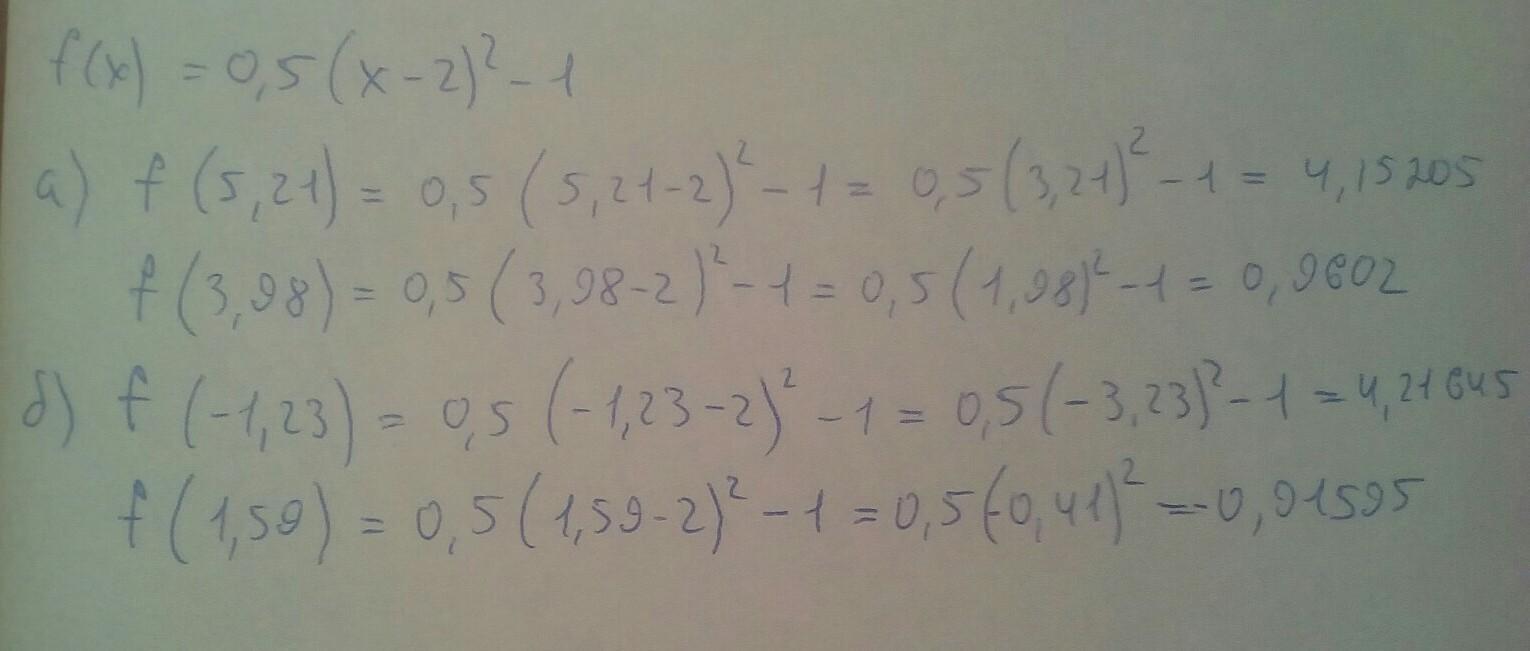 f(x) = 0,5(x-2)² - 1
а) f(5,21) = 0,5(5,21-2)² - 1 = 0,5(3,21)² - 1 = 4,15205
f(3,98) = 0,5(3,98-2)² - 1 = 0,5(1,98)² - 1 = 0,9602
б) f(-1,23) = 0,5(-1,23-2)² - 1 = 0,5(-3,23)² - 1 = 4,21645
f(1,59) = 0,5(1,59-2)² - 1 = 0,5(-0,41)² = -0,91595